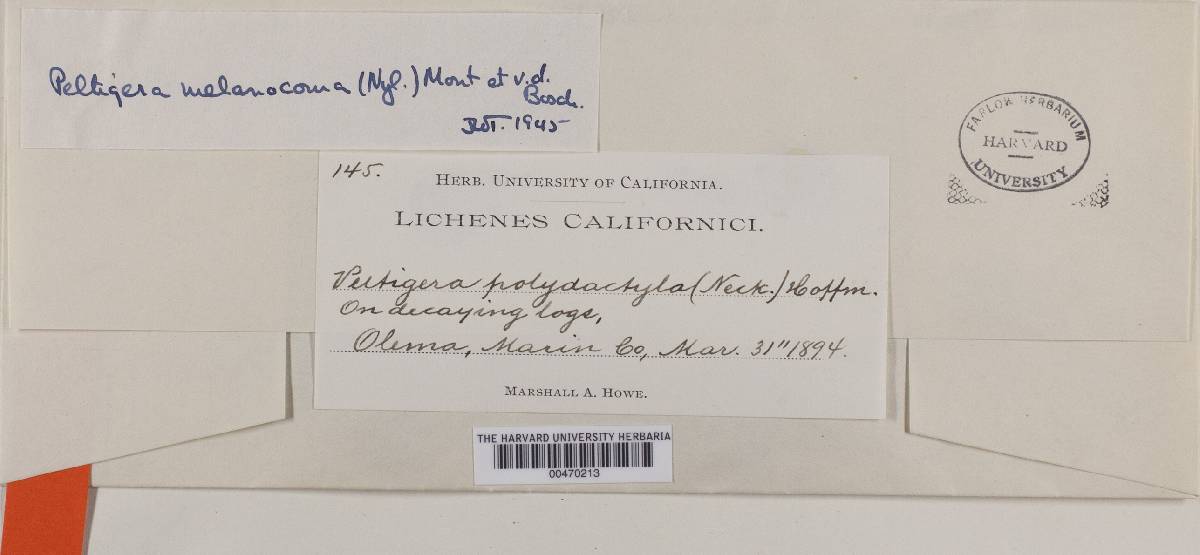 Peltigera melanocoma (Nyl.) Mont et v.d.
Bosch.
1945
FARLOW HERBARIUM
HARVARD
UNIVERSITY
145.
HERB. UNIVERSITY OF CALIFORNIA.
LICHENES CALIFORNICI.
Peltigera polydactyla (Neck.) Hoffm.
On decaying logs,
Olema, Marin Co, Mar. 31" 1894.
MARSHALL A. HOWE.
THE HARVARD UNIVERSITY HERBARIA
00470213